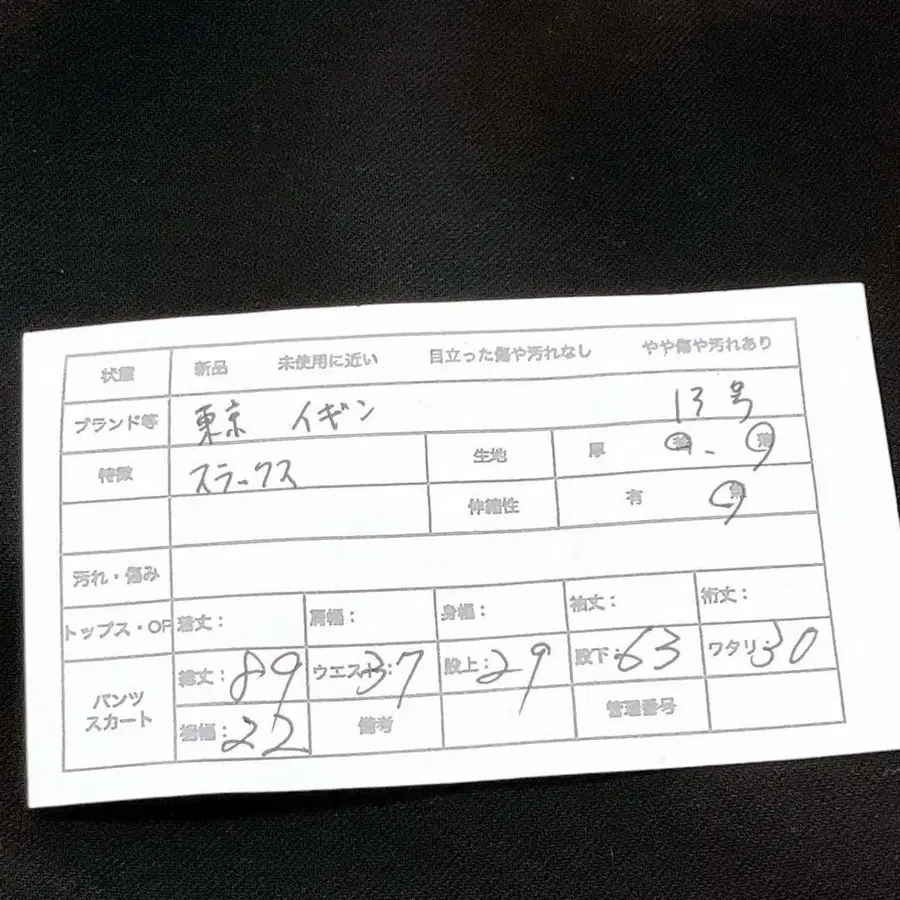 状態 新品 未使用に近い 目立った傷や汚れなし やや傷や汚れあり
ブランド等 東京 イギン 13号
特徴 スラックス 生地 厚 普 - 薄
伸縮性 有 無
汚れ・傷み
トップス・OP 着丈: 肩幅: 身幅: 袖丈: 裄丈:
パンツ スカート 総丈: 89 ウエスト: 37 股上: 29 股下: 63 ワタリ: 30
裾幅: 22 備考 管理番号